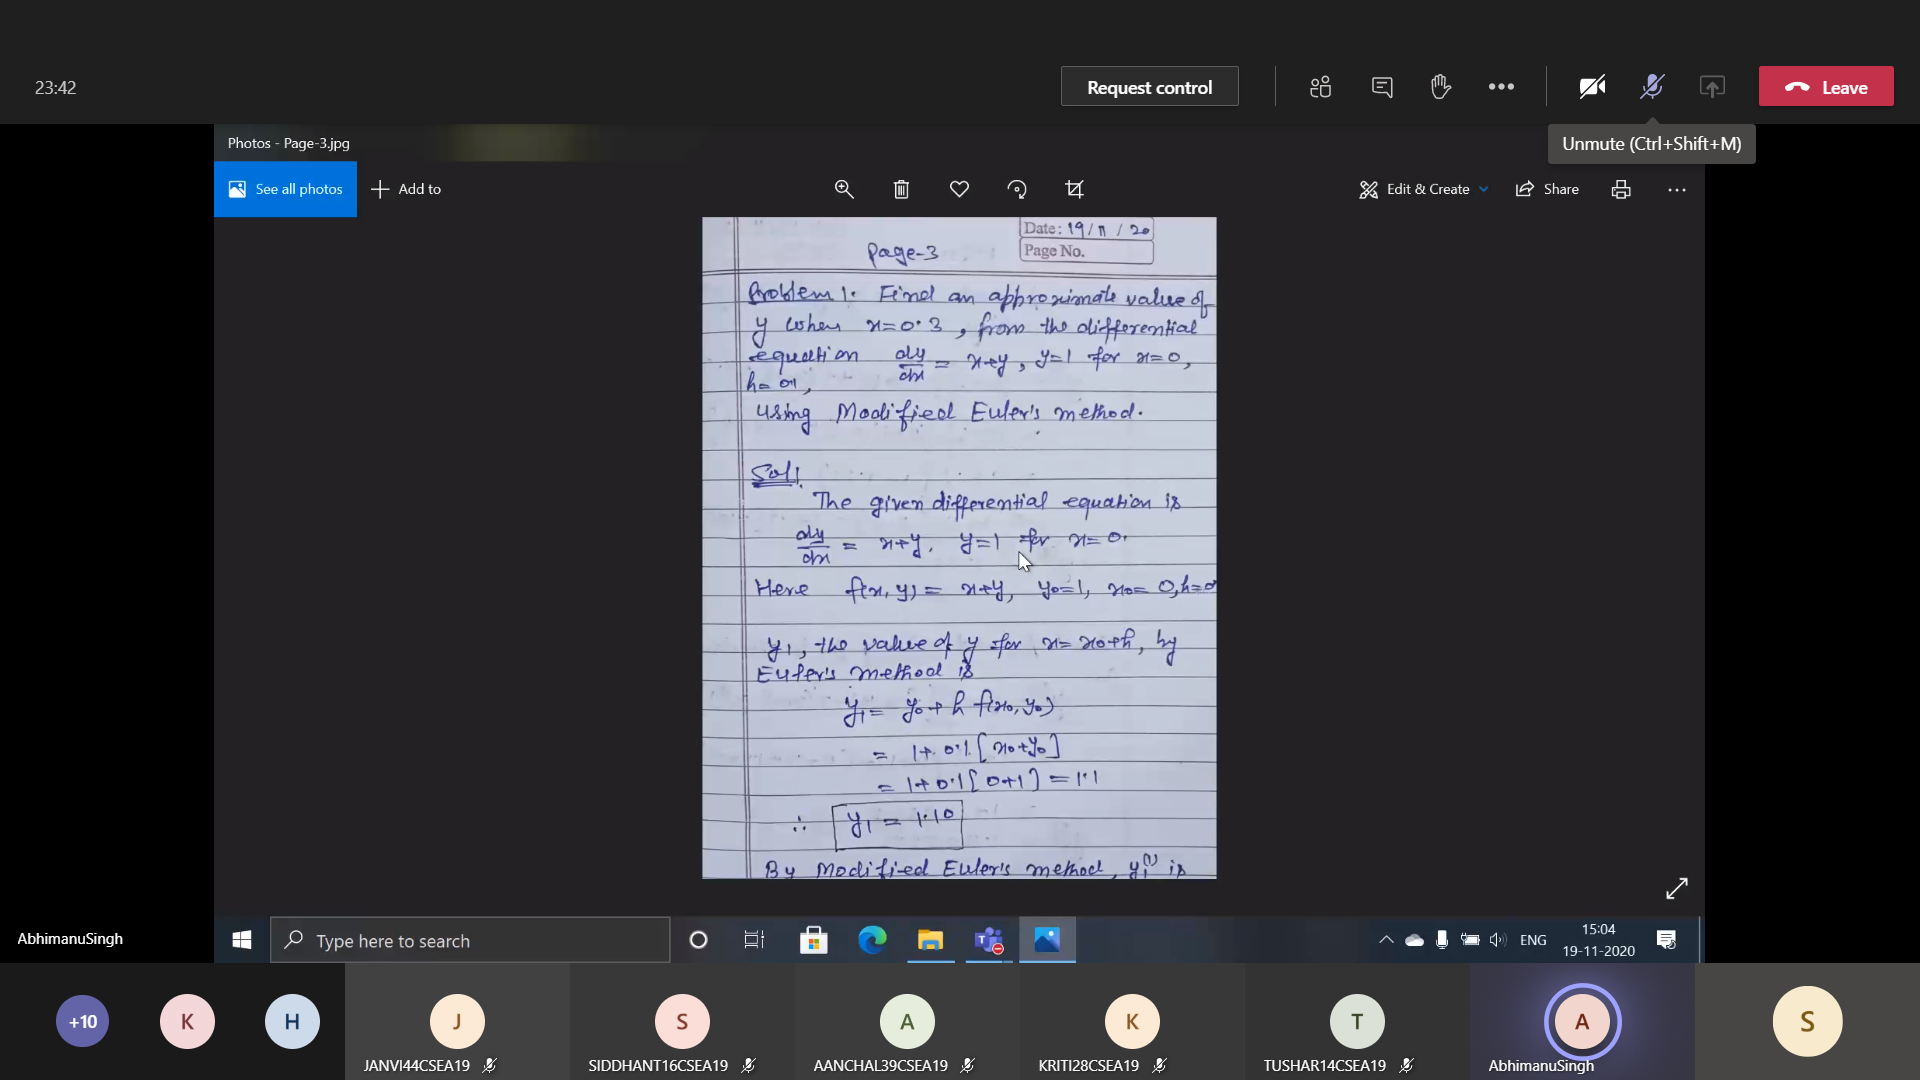 23:42
Request control
Leave
Unmute (Ctrl+Shift+M)
Photos - Page-3.jpg
See all photos
Add to
Edit & Create
Share
Date: 19/11/20
Page No.
Page-3
Problem 1. Find an approximate value of
y when x=0.3, from the differential
equation dy/dx = x+y, y=1 for x=0,
h= 0.1,
using Modified Euler's method.
Sol!.
The given differential equation is
dy/dx = x+y, y=1 for x=0.
Here f(x,y) = x+y, y₀=1, x₀=0, h=0
y₁, the value of y for x=x₀+h, by
Euler's method is
y₁= y₀+ h f(x₀,y₀)
= 1+ 0.1 [x₀+y₀]
= 1+0.1[0+1] = 1.1
∴ y₁ = 1.10
By Modified Euler's method, y₁⁽¹⁾ is
AbhimanuSingh
Type here to search
ENG
15:04
19-11-2020
+10
K
H
J
S
A
K
T
A
S
JANVI44CSEA19
SIDDHANT16CSEA19
AANCHAL39CSEA19
KRITI28CSEA19
TUSHAR14CSEA19
AbhimanuSingh